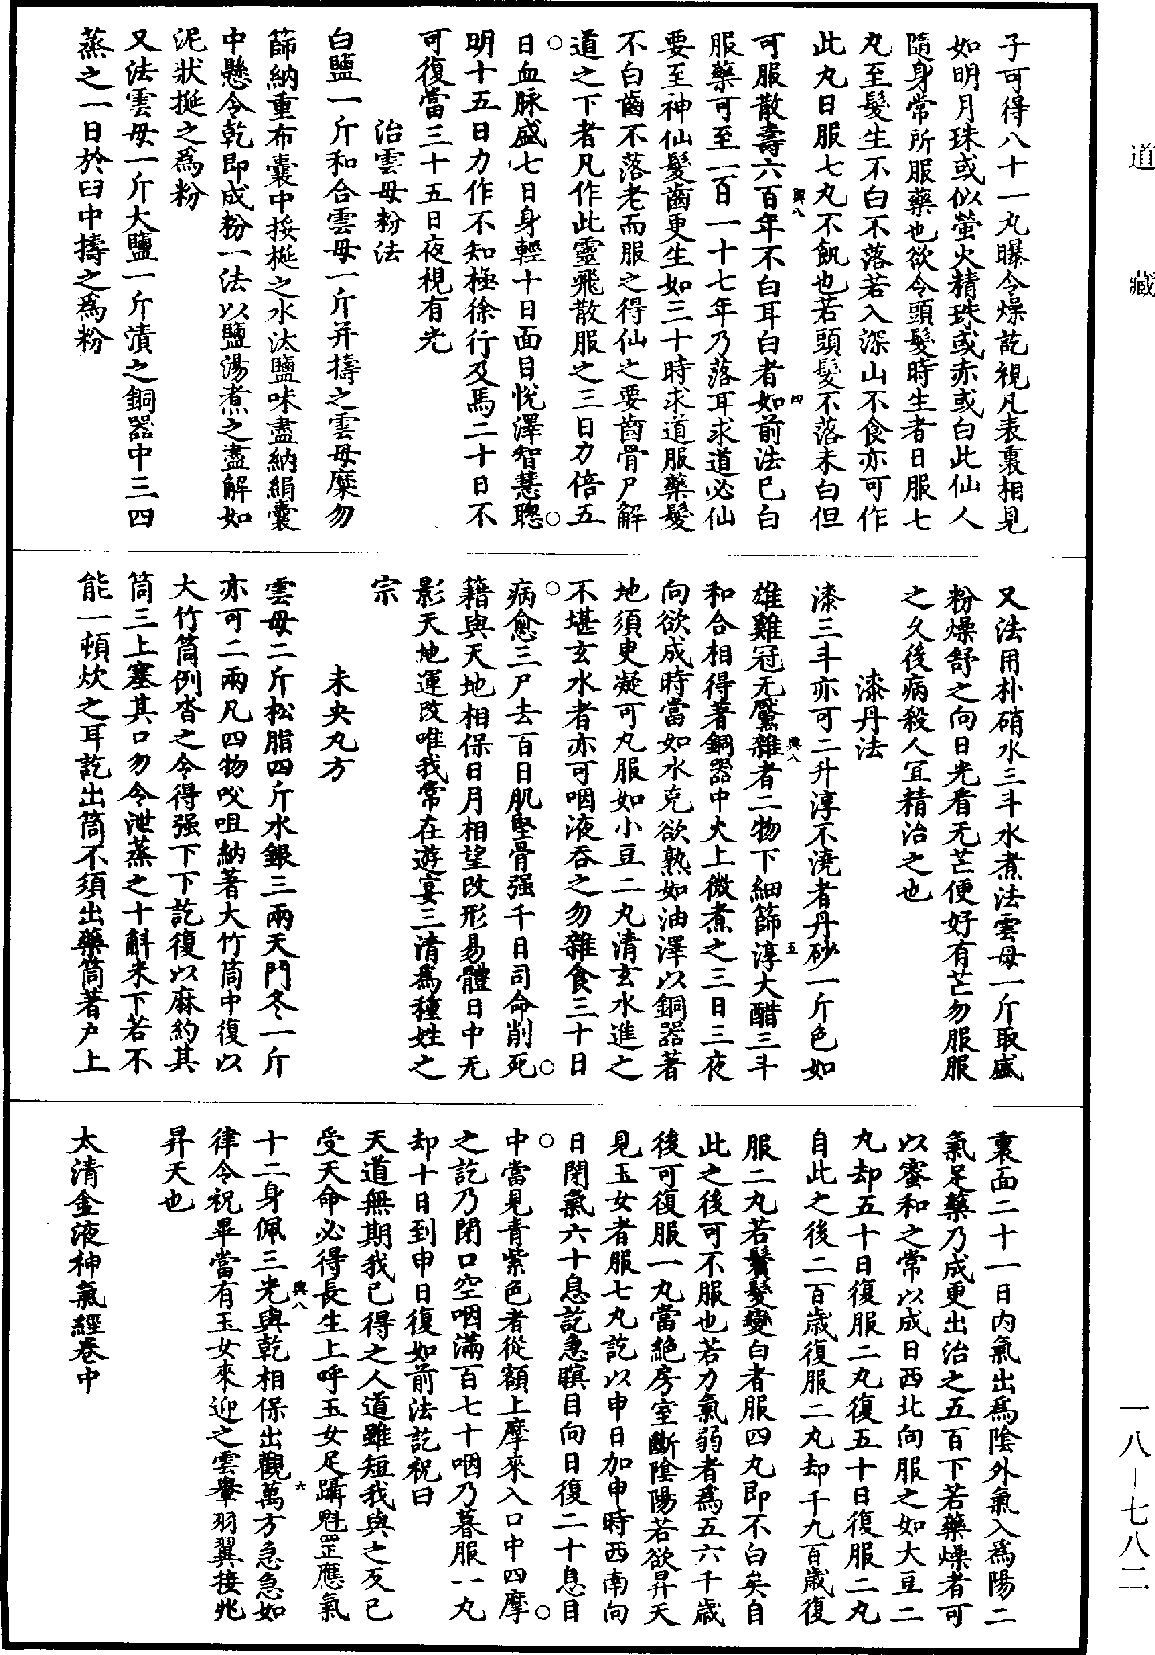 道藏
子可得八十一丸曝令燥訖視凡表裏相見
如明月珠或似螢火精珠或赤或白此仙人
隨身常所服藥也欲令頭髮時生者日服七
丸至髮生不白不落若入深山不食亦可作
此丸日服七丸不飢也若頭髮不落未白但
可服散壽六百年不白耳白者如前法已白
興八
四
服藥可至一百一十七年乃落耳求道必仙
要至神仙髮齒更生如三十時求道服藥髮
不白齒不落老而服之得仙之要齒骨尸解
道之下者凡作此靈飛散服之三日力倍五
日血脉盛七日身輕十日面目悅澤智慧聰
明十五日力作不知極徐行及馬二十日不
可復當三十五日夜視有光
治雲母粉法
白鹽一斤和合雲母一斤并擣之雲母糜勿
篩納重布囊中挼挻之水汰鹽味盡納絹囊
中懸令乾即成粉一法以鹽湯煮之盡解如
泥狀挻之為粉
又法雲母一斤大鹽一斤漬之銅器中三四
蒸之一日於臼中擣之為粉
又法用朴硝水三斗水煮法雲母一斤取盛
粉燥舒之向日光看无芒便好有芒勿服服
之久後病殺人宜精治之也
漆丹法
漆三斗亦可二升淳不澆者丹砂一斤色如
雄雞冠无黶雜者二物下細篩淳大醋三斗
興八
五
和合相得著銅器中火上微煮之三日三夜
向欲成時當如水克欲熟如油澤以銅器著
地須更凝可丸服如小豆二丸清玄水進之
不堪玄水者亦可咽液吞之勿雜食三十日
病愈三尸去百日肌堅骨强千日司命削死
籍與天地相保日月相望改形易體日中无
影天地運改唯我常在遊宴三清為種姓之
宗
未央丸方
雲母二斤松脂四斤水銀三兩天門冬一斤
亦可二兩凡四物㕮咀納著大竹筒中復以
大竹筒例沓之令得强下下訖復以麻約其
筒三上塞其口勿令泄蒸之十斛米下若不
能一頓炊之耳訖出筒不須出藥筒著戶上
裏面二十一日內氣出為陰外氣入為陽二
氣足藥乃成更出治之五百下若藥燥者可
以蜜和之常以成日西北向服之如大豆二
丸却五十日復服二丸復五十日復服二丸
自此之後二百歲復服二丸却千九百歲復
服二丸若鬚髮變白者服四丸即不白矣自
此之後可不服也若力氣弱者為五六千歲
後可復服一丸當絕房室斷陰陽若欲昇天
見玉女者服七丸訖以申日加申時西南向
日閉氣六十息訖急瞑目向日復二十息目
中當見青紫色者從額上摩來入口中四摩
之訖乃閉口空咽滿百七十咽乃暮服一丸
却十日到申日復如前法訖祝曰
天道無期我已得之人道雖短我與之反已
受天命必得長生上呼玉女足躡魁罡應氣
十二身佩三光與乾相保出觀萬方急急如
興八
六
律令祝畢當有玉女來迎之雲轝羽翼接兆
昇天也
太清金液神氣經卷中
一八—七八二